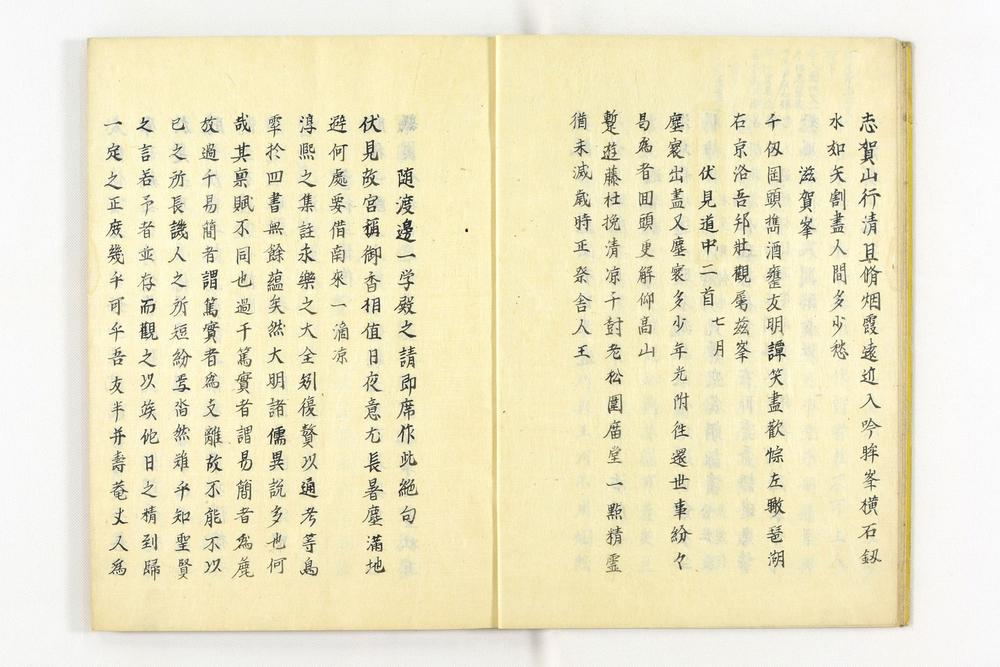 志賀山行清且脩烟霞遠近入吟眸峯横石釼
水如矢割盡人間多少愁
滋賀峯
千仭囯頭携酒壅友明譚笑盡歡悰左瞰琶湖
右京洛吾邦壯觀屬茲峯
伏見道中二首 七月
塵寰出盡又塵寰多少年光附徃還世事紛々
曷爲者囬頭更解仰高山
蹔遊藤杜挽清凉千封老松圍庿堂一點精霊
猶未滅歳時正祭舎人王
随渡邊一学殿之請即席作此絶句
伏見故宮稱御香相值日夜意尤長暑塵滿地
避何處要借南來一滴凉
淳熈之集註永樂之大全矧復贅以通考等鳥
虖於四書無餘蘊矣然大明諸儒異說多也何
哉其稟賦不同也過于篤實者謂易簡者爲麁
放過于易簡者謂篤實者爲支離故不能不以
己之所長譏人之所短紛㝍沓然雖乎知聖賢
之言若予者並存而觀之以竢他日之精到歸
一定之正庻幾乎可乎吾友半井壽菴丈人爲